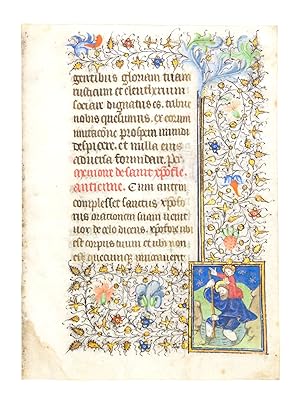 gentibus gloriam tuam
rusticum et eleutherium
sociare dignatus es. tribue
nobis quesumus. ex eorum
imitacõne prospera mundi
despicere. et nulla eius
adversa formidare. per
memoire de saint xpofle
antienne. Cum autem
complesset sanctus xpofo
rus orationem suam venit
vox de celo dicens. xpofore ubi
est corpus tuum et ubi non
est quecumque